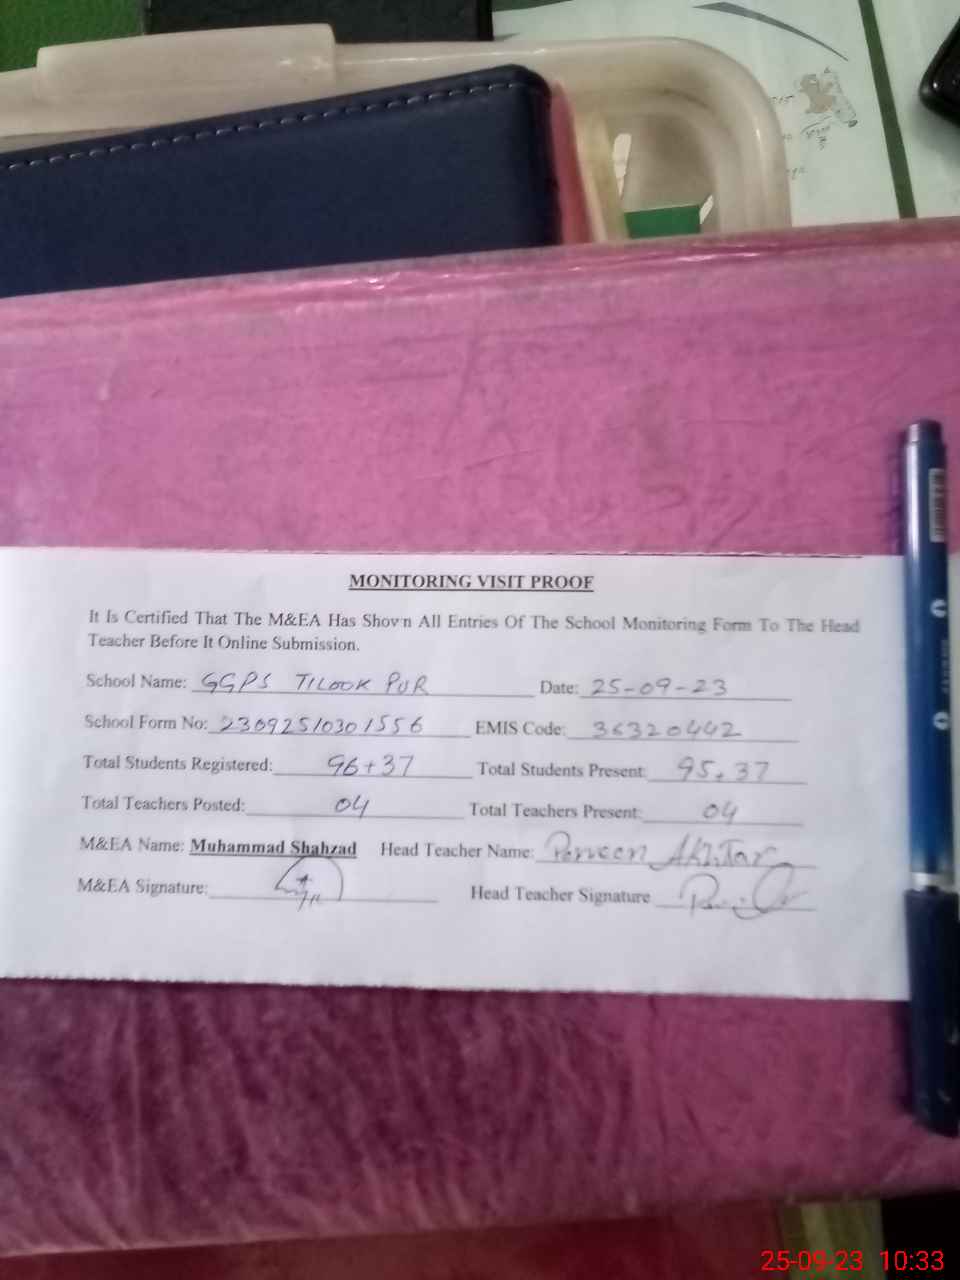 MONITORING VISIT PROOF
It Is Certified That The M&EA Has Shown All Entries Of The School Monitoring Form To The Head
Teacher Before It Online Submission.
School Name: GGPS TILOOK PUR Date: 25-09-23
School Form No: 23092510301556 EMIS Code: 36320442
Total Students Registered: 96+37 Total Students Present: 95+37
Total Teachers Posted: 04 Total Teachers Present: 04
M&EA Name: Muhammad Shahzad Head Teacher Name: Parveen Akhtar
M&EA Signature: Head Teacher Signature
25-09-23 10:33